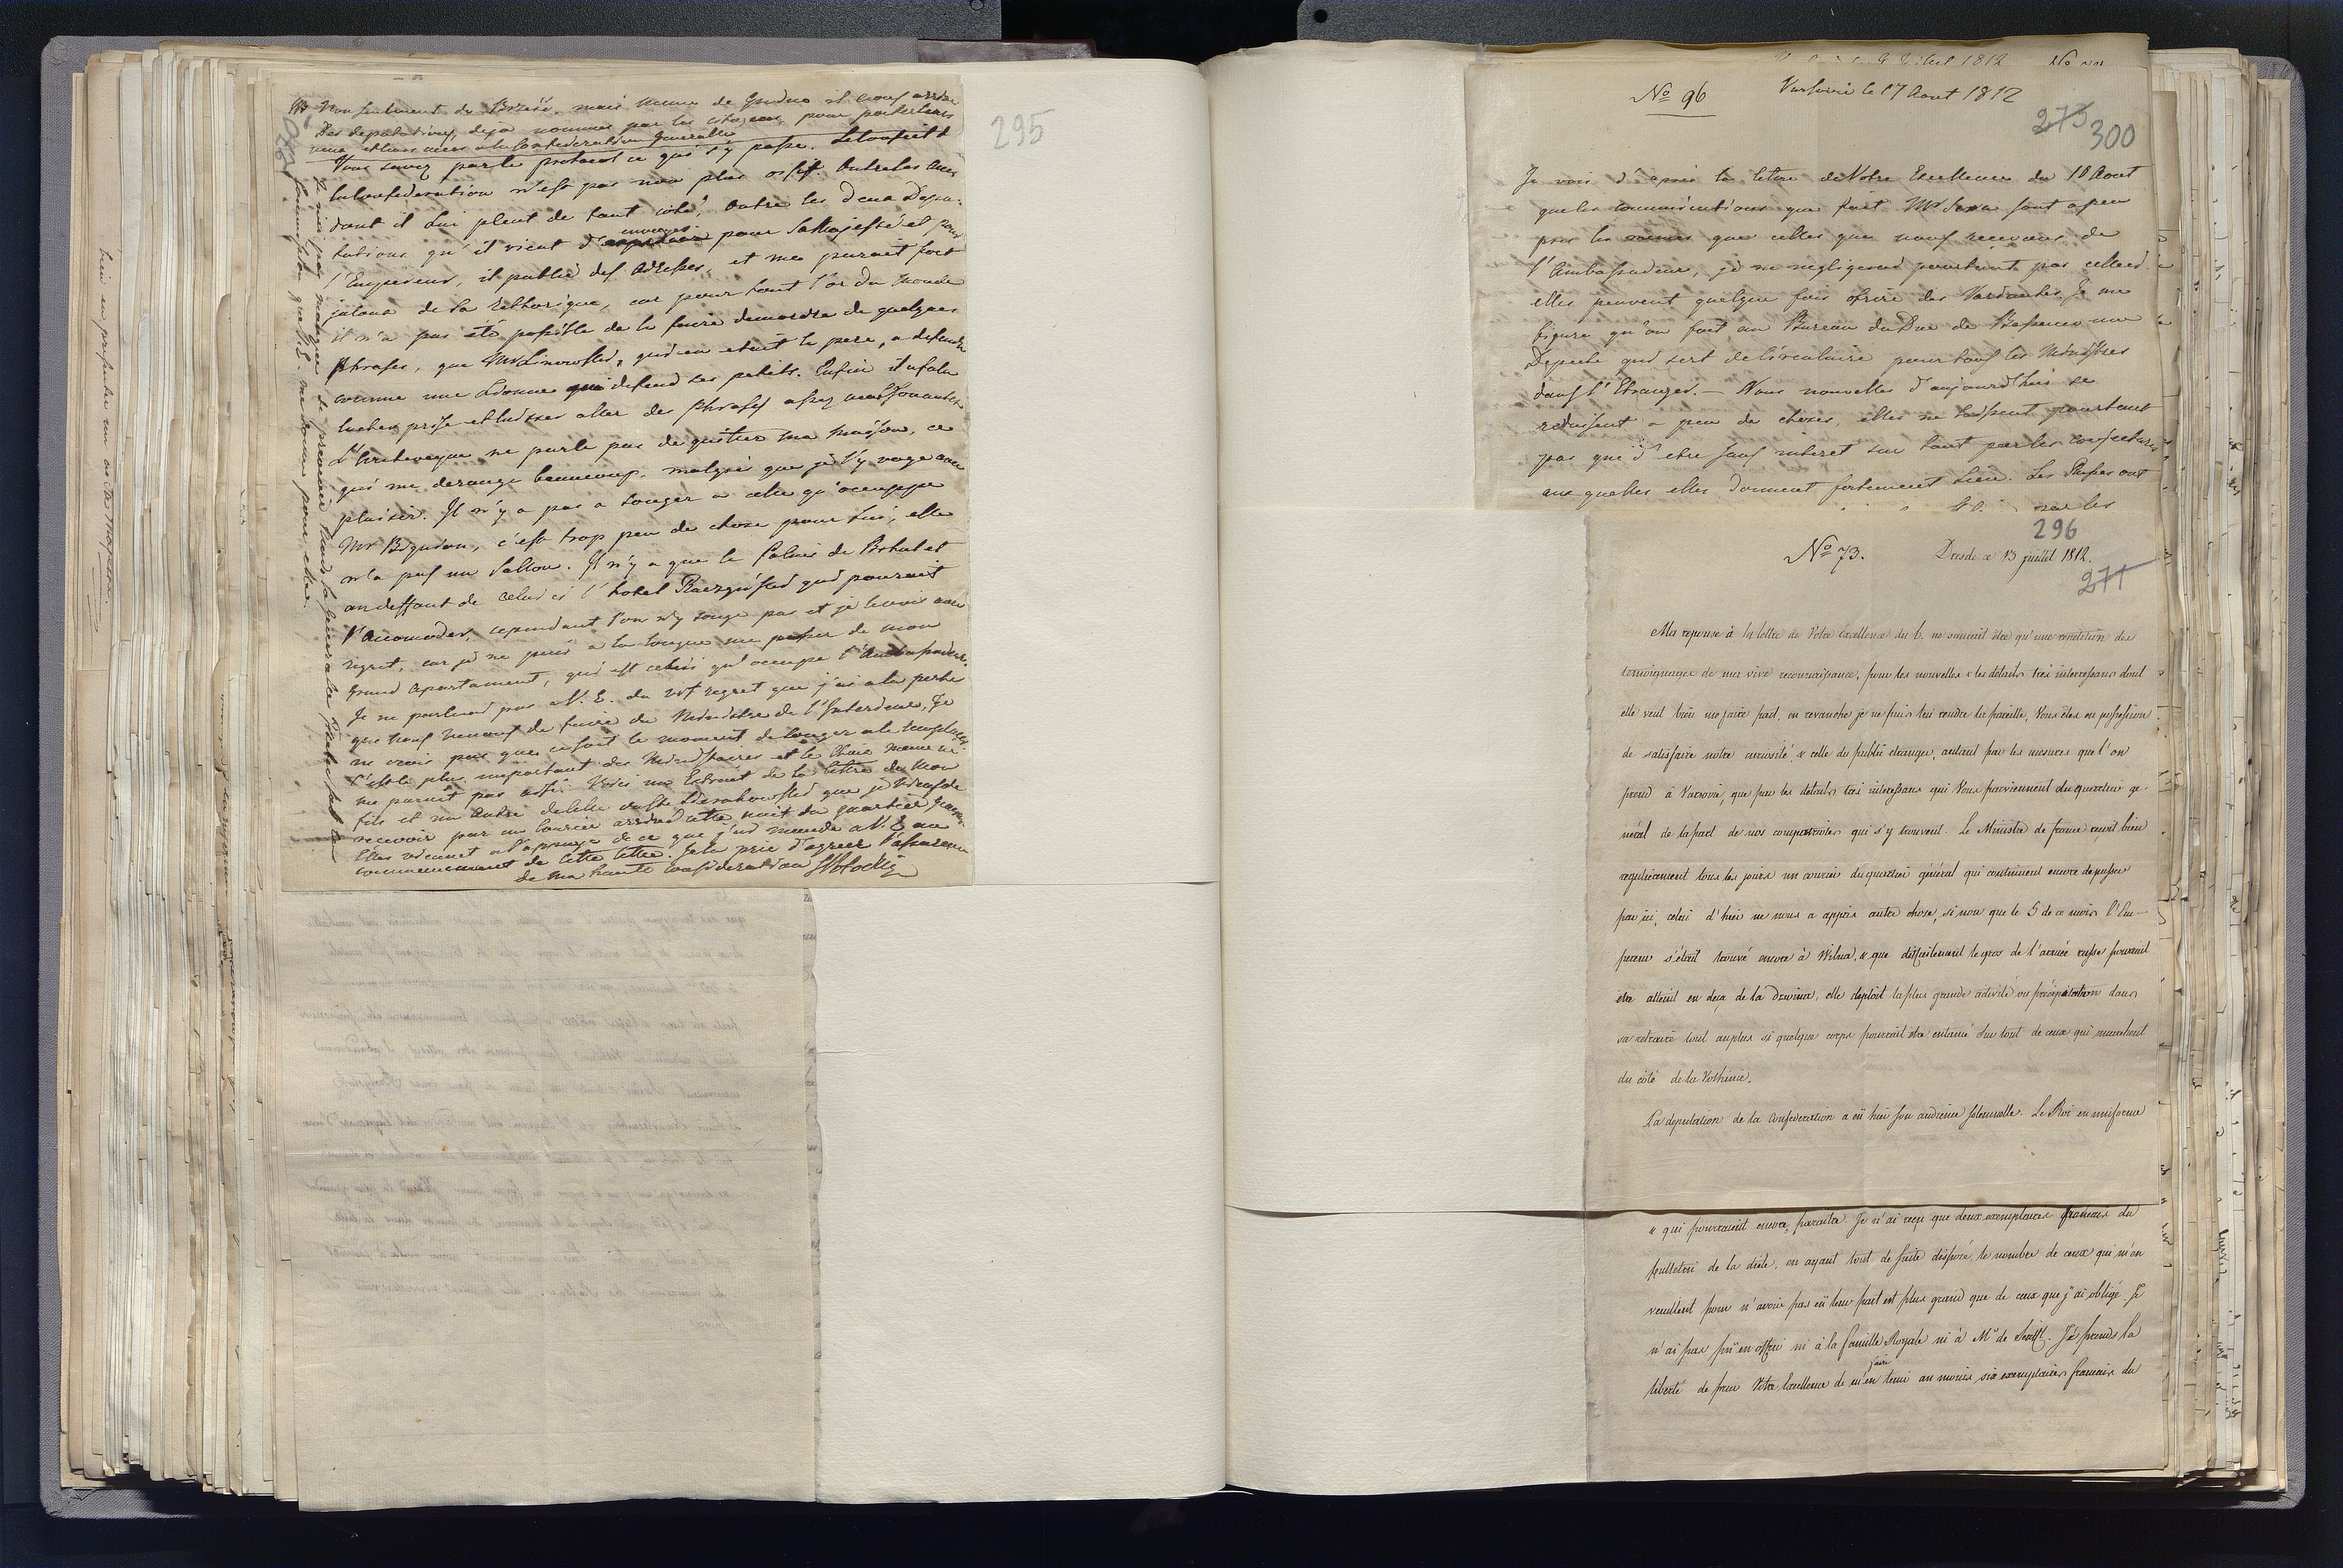 295
NB Non seulement de Brzesc, mais meme de Grodno il nous arrive
Des deputations, deja nommés par les citoyens, pour porter leurs
voeux et leur acces a la Confederation Generalle
Vous savez par le protocol ce qui s'y passe. Le Conseil d
la Confederation n'est pas non plus oisif. Outre les
dont il lui pleut de tout coté, outre les deux Depu-
tations qu'il vient d'envoyer pour Sa Majesté et pour
l'Empereur, il publie des adresses, et me parait fort
jaloux de sa Rethorique, car pour tout l'or du monde
il n'a pas été possible de le faire demordre de quelques
phrases, que Mr Linowski, qui en etait le pere, a defendu
comme une Lionne qui defend ses petits. Enfin il a falu
lacher prise et laisser aller des phrases assez
L'Archeveque ne parle pas de quitter ma maison, ce
qui me derange beaucoup, malgré que je l'y voye avec
plaisir. Il n'y a pas a songer a celle qu'occuppe
Mr Bignon, c'est trop peu de chose pour lui, elle
n'a pas un Sallon. Il n'y a que le Palais de Brhul et
au deffaut de celui ci l'hotel Raczynski qui pourait
l'accomoder, cependant l'on n'y songe pas et je le vois avec
regret, car je ne puis a la longue me passer de mon
grand apartament, qui est celui qu'occupe l'Ambassadeur.
Je ne parlerai pas a V. E. du vif regret que j'ai a la perte
que nous venons de faire du Ministre de l'Interieur, Je
ne crois pas que ce soit le moment de songer a le remplacer
C'est le plus important des Ministaires et le choix meme ne
me parait pas aisé. Voici un Extrait de la lettre de Mon
fils et un autre de celle que je viens de
recevoir par un Courier arrivé cette nuit du quartier General
Elles viennet a l'appuye de ce que j'ai mandé a V. E au
commencement de cette lettre. Je la prie d'agreer l'assurance
de ma haute consideration
bien en presenter un a Sa Majesté.
No 96
Varsovie le 17 Aout 1812
275
300
Je vois d'apres la lettre de Votre Excellence du 10 Aout
que les communications que fait Mr Serra sont a peu
pres les memes que celles que nous recevons de
l'Ambassadeur, je ne negligerai pourtant pas celles ci
elles peuvent quelque fois ofrir des Variantes. Je me
figure qu'on fait au Bureau du Duc de Bassano une
Depeche qui sert de Circulaire pour tous les Ministres
dans l'Etranger. — Nous nouvelles d'aujourdhui se
reduisent a peu de choses, elles ne laissent pourtant
pas que d'etre sans interet sur tout par les conjectures
aux quelles elles donnent fortement lieu. Les Russes ont
296
No 73.
Dresde ce 13 juillet 1812.
271
Ma reponse à la lettre de Votre Excellence du 6. ne saurait être qu'une repetition des
temoignages de ma vive reconnaissance, pour les nouvelles & les détails très interessans dont
elle veut bien me faire part, en revanche je ne puis lui rendre la pareille, Vous êtes en possession
de satisfaire notre curiosité & celle du public etranger, autant par les mesures que l'on
prend à Varsovie, que par les détails très interessans qui Vous parviennent du quartier gé-
néral de la part de nos compatriotes qui s'y trouvent. Le Ministre de france reçoit bien
regulierement tous les jours un courier du quartier général qui continuent encore de passer
par ici, celui d'hier ne nous a appris autre chose, si non que le 5 de ce mois l'Em-
pereur s'était trouvé encore à Wilna, & que difficilement le gros de l'armée russe pourrait
être atteint en deça de la Dzwina, elle deploit la plus grande activité ou précipitation dans
sa retraite tout au plus si quelque corps pourrait être entamé sur tout de ceux qui marchent
du côté de la Volhinie.
La deputation de la Confederation a eü hier son audience solennelle. Le Roi en uniforme
& qui pourraient encore paraitre. Je n'ai reçu que deux exemplaires francais du
bulletin de la diete, en ayant tout de suite disposé, le nombre de ceux qui m'en
veuillent pour n'avoir pas eü leur part est plus grand que de ceux que j'ai obligé. Je
n'ai pas pü en offrir ni à la famille Royale ni à Mr de Senfft. Je prends la
liberté de prier Votre Excellence de m'en faire tenir au moins six exemplaires francais du